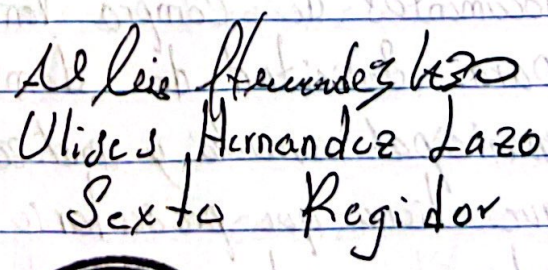 Ulises Hernandez Lazo
Ulises Hernandez Lazo
Sexto Regidor